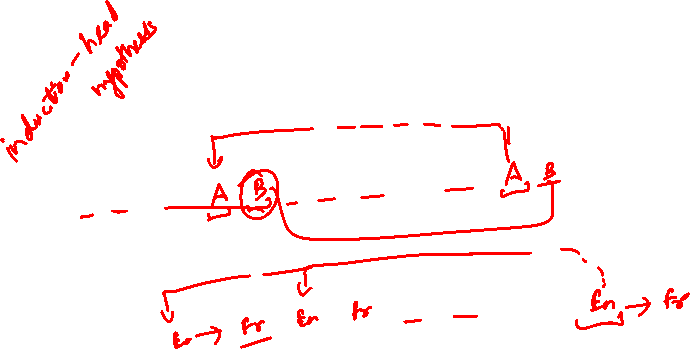 induction-head
hypothesis
A B A B
En → Fr En Fr En → Fr